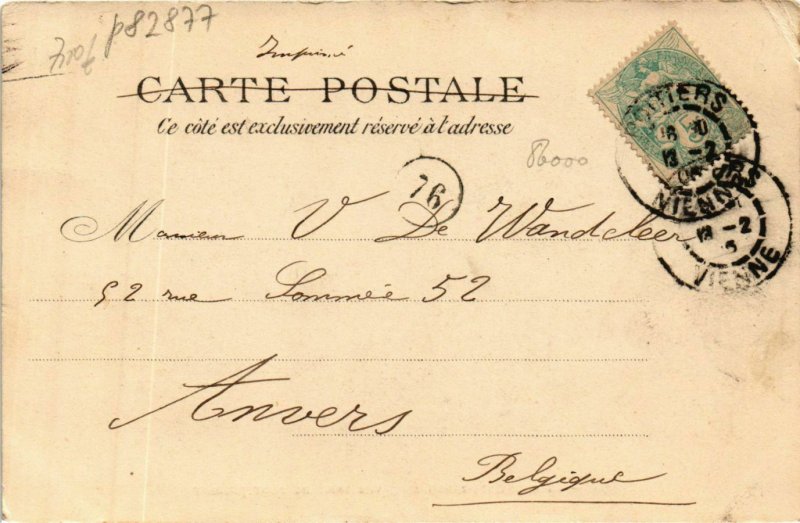 p82877
Imprimé
CARTE POSTALE
Ce côté est exclusivement réservé à l'adresse
86000
76
POITIERS
13 -2
VIENNE
13 -2
VIENNE
Monsieur V De Wandeleer
52 rue Sommée 52
Anvers
Belgique